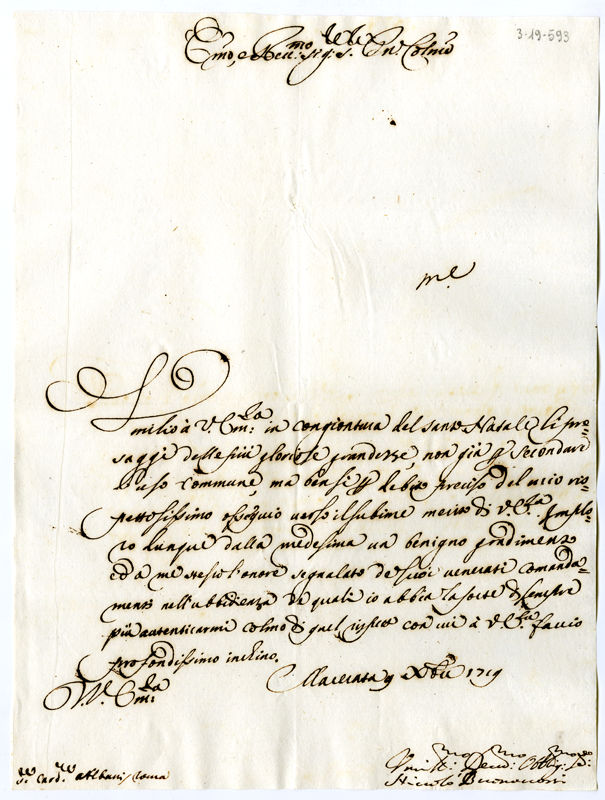 3-19-593
Emo, e Rev.mo Sig.r Sig.r Pn̄e Colmo
m.e
Umilio à V. Em:za in congiontura del santo Natale li pre=
saggi delle più gloriose grandezze, non già p secondare
l'uso commune, ma bensi p debito preciso del mio ris=
pettosissimo ossequio verso il sublime merito di V. E.za Implo=
ro dunque dalla medesima un benigno gradimento
ed à me stesso l'onore segnalato de suoi venerati comanda=
menti nell'ubbidienza de quali io abbia la sorte di sempre
più autenticarmi colmo di quel rispetto con cui à V. E.za faccio
profondissimo inchino.
Macerata 9 Xbre 1719
V.ra Em:za
Sr Card.l Albani / Roma
Umil.mo Dev.mo Obblig.mo Se:
Niccolò Buonaccorsi